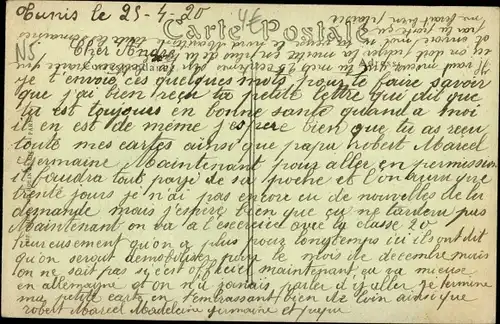 Tunis le 25-4-20
Carte Postale
Cher André
je t'envois ces quelques mots pour te faire savoir
que j'ai bien reçu ta petite lettre qui dit que
tu est toujours en bonne santé quand a moi
il en est de même j'espère bien que tu as reçu
toute mes cartes ainsi que papa robert Marcel
Germaine Maintenant pour aller en permission
il faudra tout payé de sa poche et l'on aura que
trente jours je n'ai pas encore eu de nouvelles de la
demande mais j'espère bien que ça ne tardera pas
Maintenant on va a l'exercice avec la classe 20
heureusement qu'on a plus pour longtemps ici ils ont dit
qu'on serait demobilisés pour le mois de decembre mais
on ne sait pas si c'est officiel maintenant ça va mieux
en allemagne et on n'a jamais parler d'y aller je termine
ma petite carte en t'embrassant bien de loin ainsi que
robert Marcel Madeleine germaine et papa